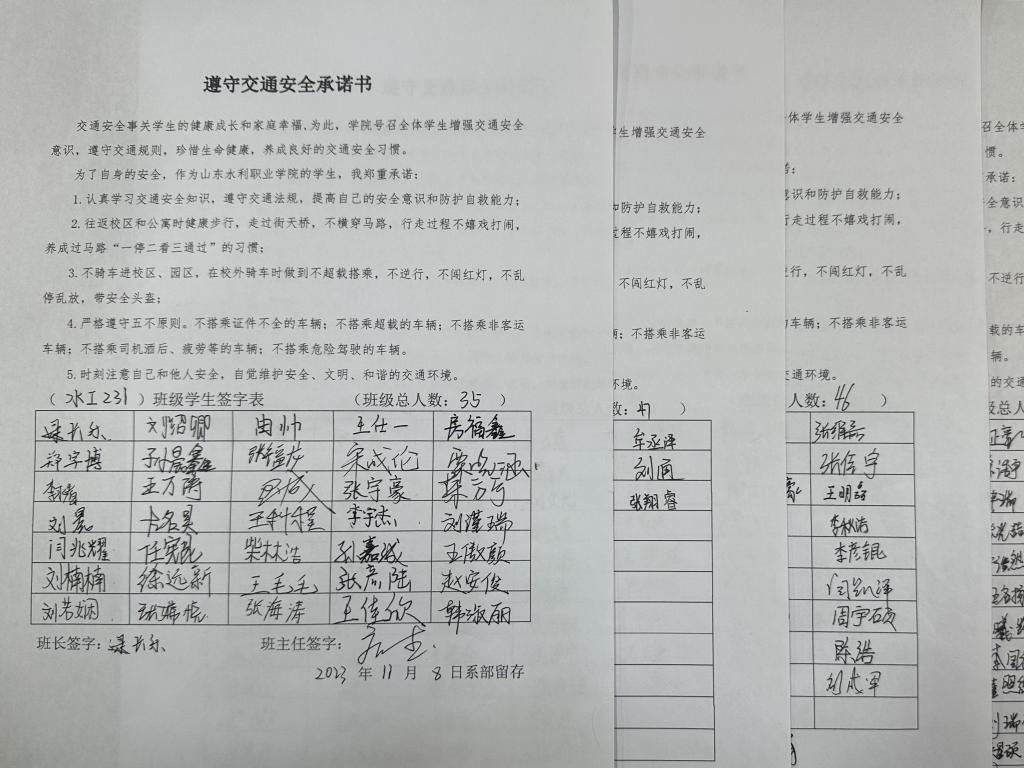 遵守交通安全承诺书
交通安全事关学生的健康成长和家庭幸福,为此,学院号召全体学生增强交通安全
意识,遵守交通规则,珍惜生命健康,养成良好的交通安全习惯。
为了自身的安全,作为山东水利职业学院的学生,我郑重承诺:
1.认真学习交通安全知识,遵守交通法规,提高自己的安全意识和防护自救能力;
2.往返校区和公寓时健康步行,走过街天桥,不横穿马路,行走过程不嬉戏打闹,
养成过马路“一停二看三通过”的习惯;
3.不骑车进校区、园区,在校外骑车时做到不超载搭乘,不逆行,不闯红灯,不乱
停乱放,带安全头盔;
4.严格遵守五不原则。不搭乘证件不全的车辆;不搭乘超载的车辆;不搭乘非客运
车辆;不搭乘司机酒后、疲劳等的车辆;不搭乘危险驾驶的车辆。
5.时刻注意自己和他人安全,自觉维护安全、文明、和谐的交通环境。
(水工231)班级学生签字表 (班级总人数:35 )
刘绍卿 由帅 王仕一 房福鑫
郑字博 孙晨鑫 宋成伦
王万涛 张宇豪
刘 李宇杰 刘谨瑞
闫兆耀 柴林浩 孙嘉诚 王傲颜
刘楠楠 徐远新 王毛毛 张彦陆 赵安俊
刘芳娴 张海涛 王佳欣 韩淑丽
班长签字: 班主任签字:
2023 年 11 月 8 日系部留存
学生增强交通安全
和防护自救能力;
过程不嬉戏打闹,
不闯红灯,不乱
辆;不搭乘非客运
环境。
数:47 )
牟丞泽
刘甬
张翔睿
体学生增强交通安全
意识和防护自救能力;
走过程不嬉戏打闹,
逆行,不闯红灯,不乱
车辆;不搭乘非客运
交通环境。
人数:46 )
张信宇
王明磊
李秋浩
李彦锟
周宇硕
陈浩
刘成军
召全体学
惯。
承诺:
全意识
,行走
不逆行
载的车
辆。
的交通
级总人